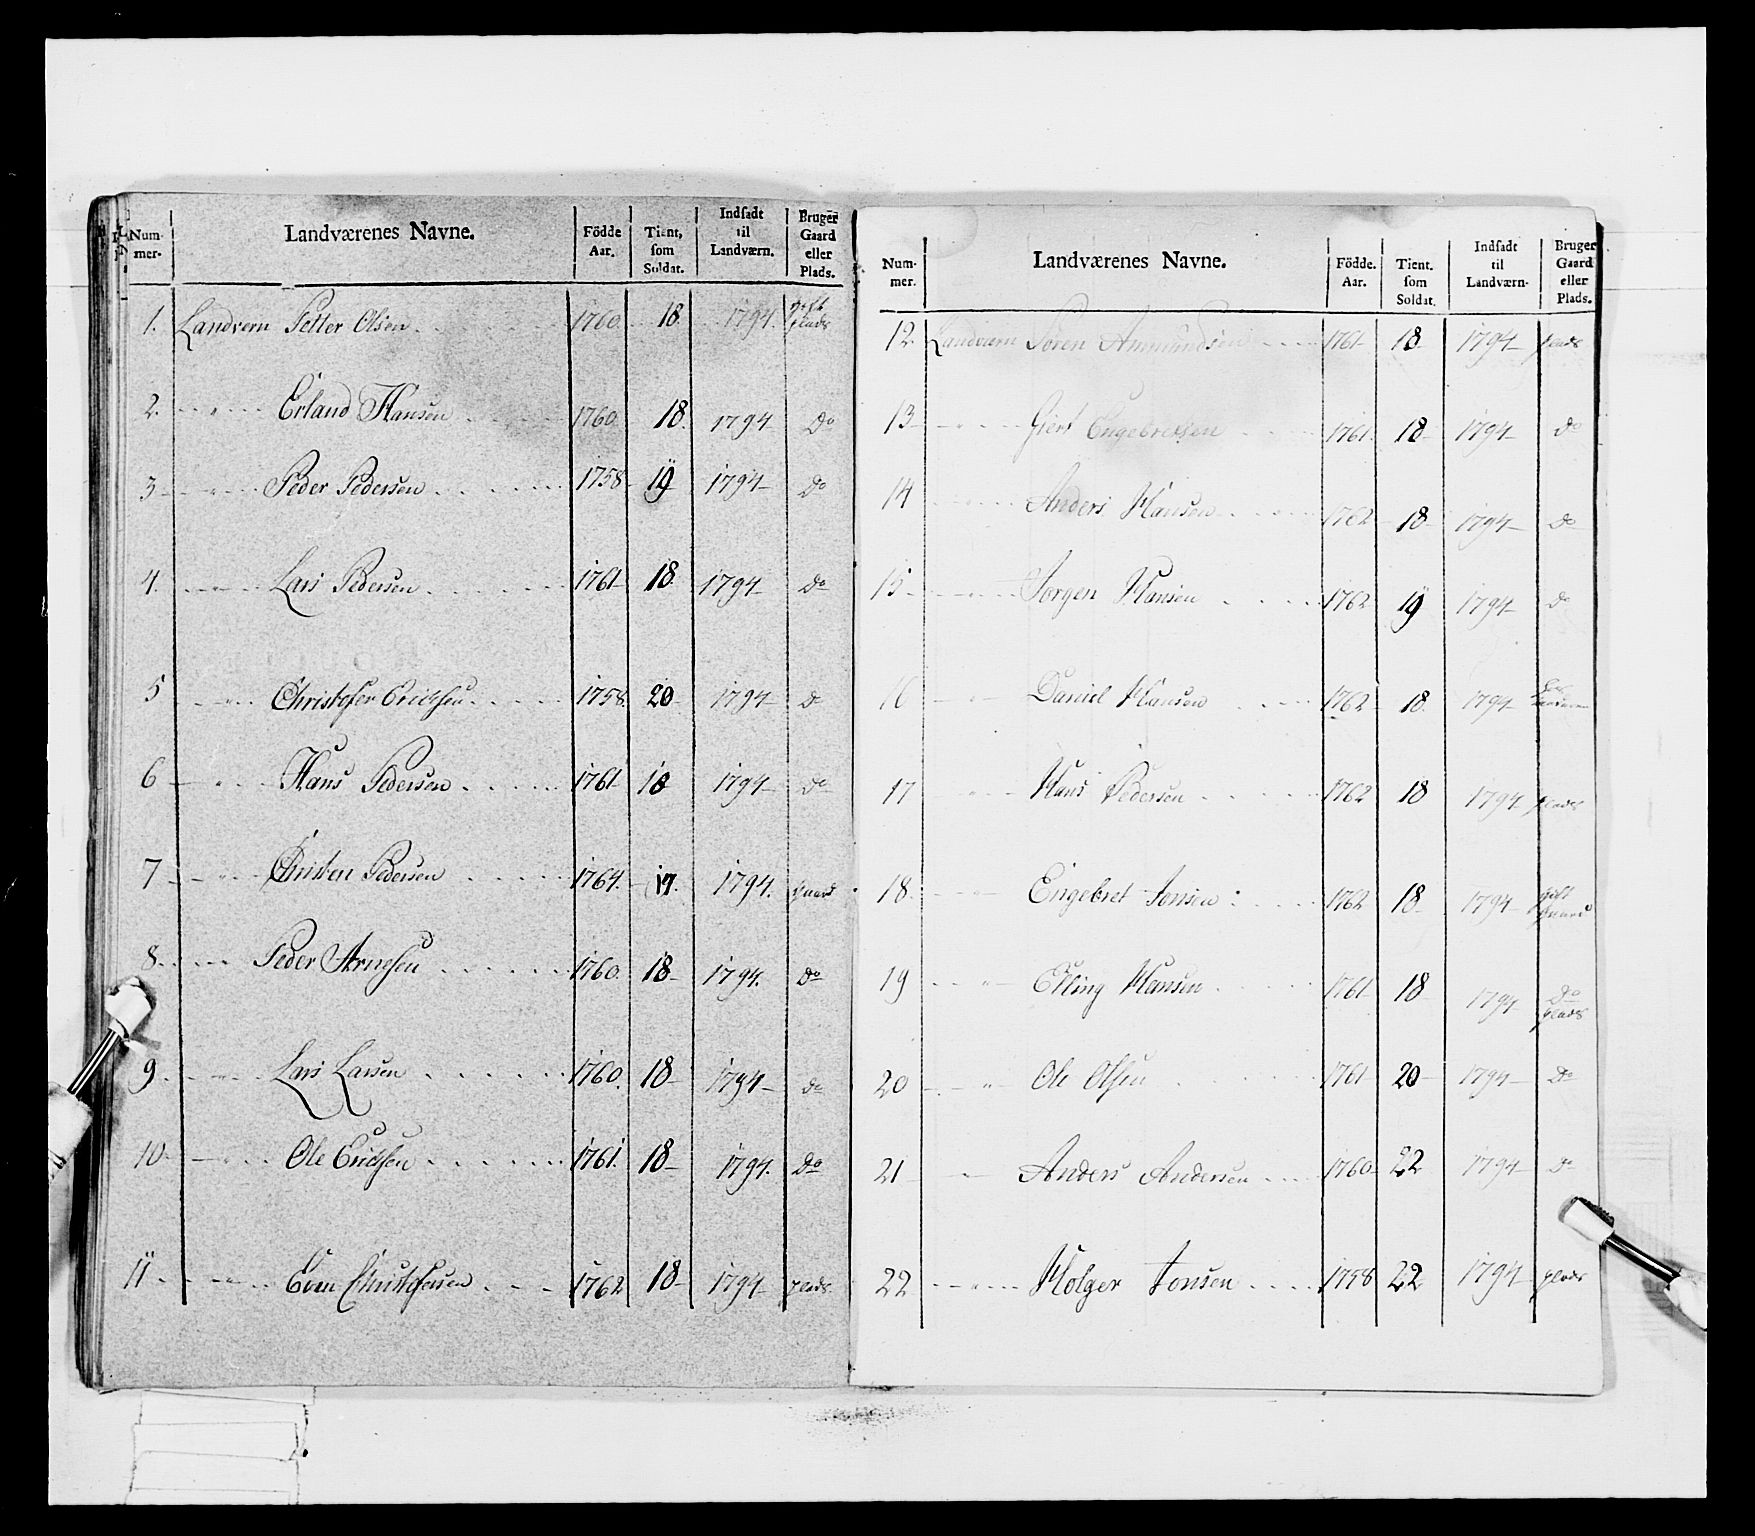 Num-mer. Landværenes Navne. Födde Aar. Tient, som Soldat. Indsadt til Landværn. Bruger Gaard eller Plads.
1. Landvern Petter Olsen 1760 18 1794. plads
2. Erland Hansen 1760 18. 1794 Do
3 Peder Pedersen 1758 19 1794 Do
4. Lars Pedersen 1761 18 1794 Do
5 Christofer Erichsen 1758. 20 1794 D
6 Hans Pedersen 1761 18 1794 Do
7 Christen Pedersen 1764. 17. 1794. Gaard
8. Peder Arnesen 1760. 18 1794. Do
9 Lars Larsen 1760. 18 1794 Do
10. Ole Erichsen 1761. 18 1794. Do
11 Even Christophersen 1762 18 1794 plads
Num-mer. Landværenes Navne. Födde. Aar. Tient. som Soldat. Indsadt til Landværn. Bruger Gaard eller Plads.
12 Landværn Sören Ammundsen 1761 18 1794 plads
13 Giert Engebretsen 1761. 18 1794 Do
14 Anders Hansen 1762 18 1794 Do
15 Jörgen Hansen 1762 19 1794 Do
16 Daniel Hansen 1762 18 1794
17 Hans Pedersen 1762 18 1794 plads
18. Engebret Jonsen 1762 18 1794 gift Gaard
19 Elling Hansen 1761 18 1794 Do plads
20 Ole Olsen 1761 20 1794 Do
21 Anders Andersen 1760 22 1794 Do
22 Holger Jonsen 1758 22 1794 plads